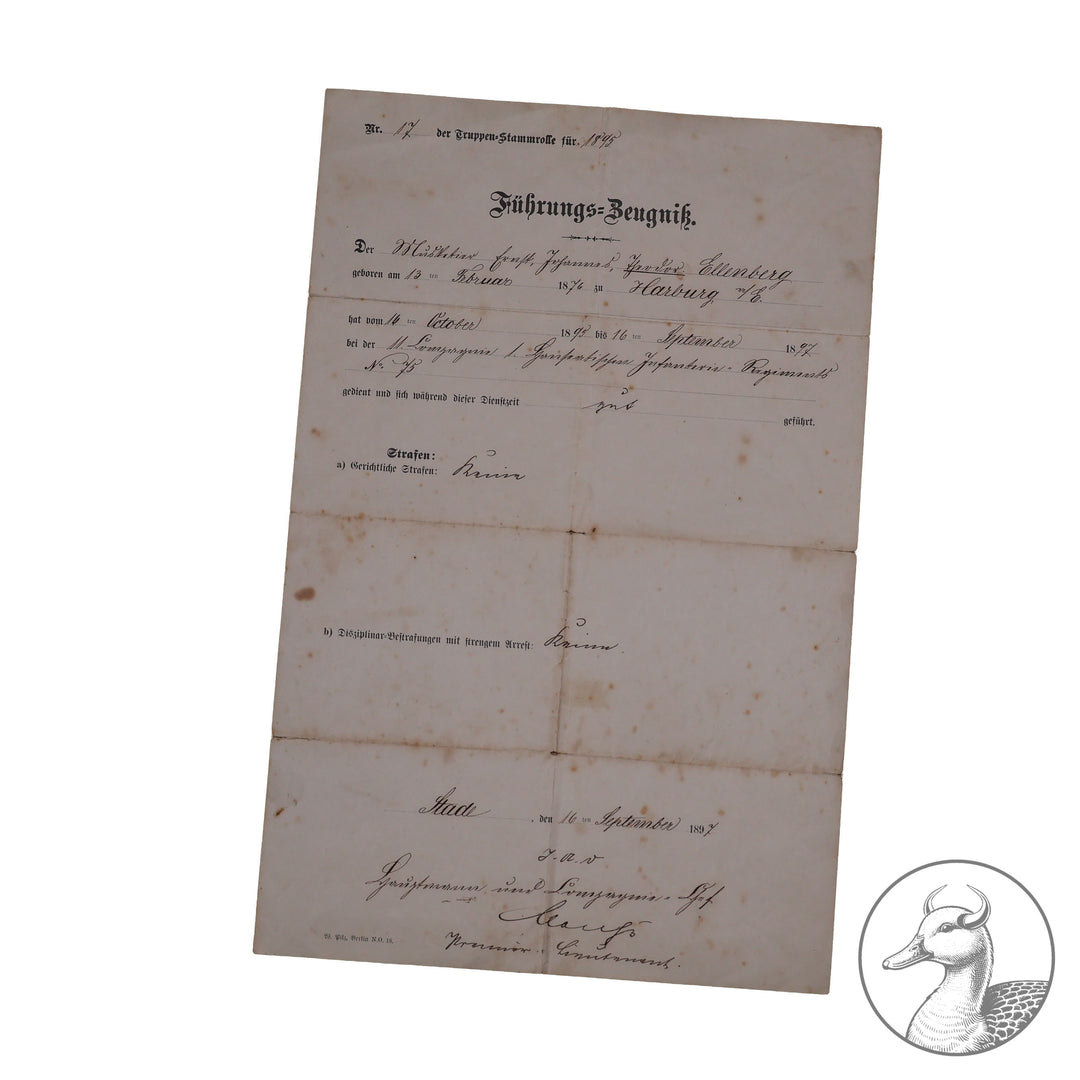 Nr. 17 der Truppen-Stammrolle für 1895
Führungs-Zeugniß.
Der Musketier Ernst, Johannes, Theodor Ellenberg
geboren am 13 ten Februar 1876 zu Harburg a/E.
hat vom 16 ten October 1895 bis 16 ten September 1897
bei der 11. Compagnie 1. Hanseatischen Infanterie-Regiments
No. 75
gedient und sich während dieser Dienstzeit gut geführt.
Strafen:
a) Gerichtliche Strafen: Keine
b) Disziplinar-Bestrafungen mit strengem Arrest: Keine.
Stade, den 16 ten September 1897
J. A. v
Hauptmann und Compagnie-Chef
Premier-Lieutenant.
W. Pilz, Berlin N.O. 18.